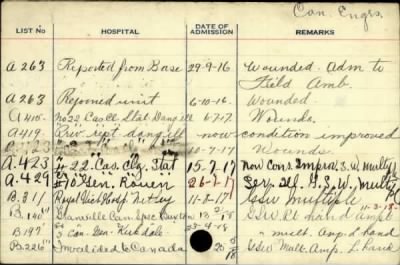 Can. Engrs.
LIST No HOSPITAL DATE OF ADMISSION REMARKS
A 263 Reported from Base 29-9-16 Wounded. Adm to
Field Amb.
A 263 Rejoined unit 6-10-16 Wounded
A 415 No 22 Cas. Cl. Stat Dang ill 6-7-17 Wounds.
A 419 Prev rept. dang ill now condition improved
10-7-17 Wounds.
A. 423 22 Cas. Clg. Stat 15-7-17 Now Cons. Improv. S.W. multy
A. 429 Gen. Rouen 26-7-17 Ser. Ill G.S.W. multy
B. 311 Royal Vict Hosp Netley 11-8-17 GSW multiple 11-3-18
B. 140 Granville Can Spec Buxton GSW Rt hand Ampt
B. 197 5 Can. Gen. Kirkdale 22-4-18 " mult. Amp. L hand
B. 226 Invalided to Canada GSW Mult. Amp. L hand